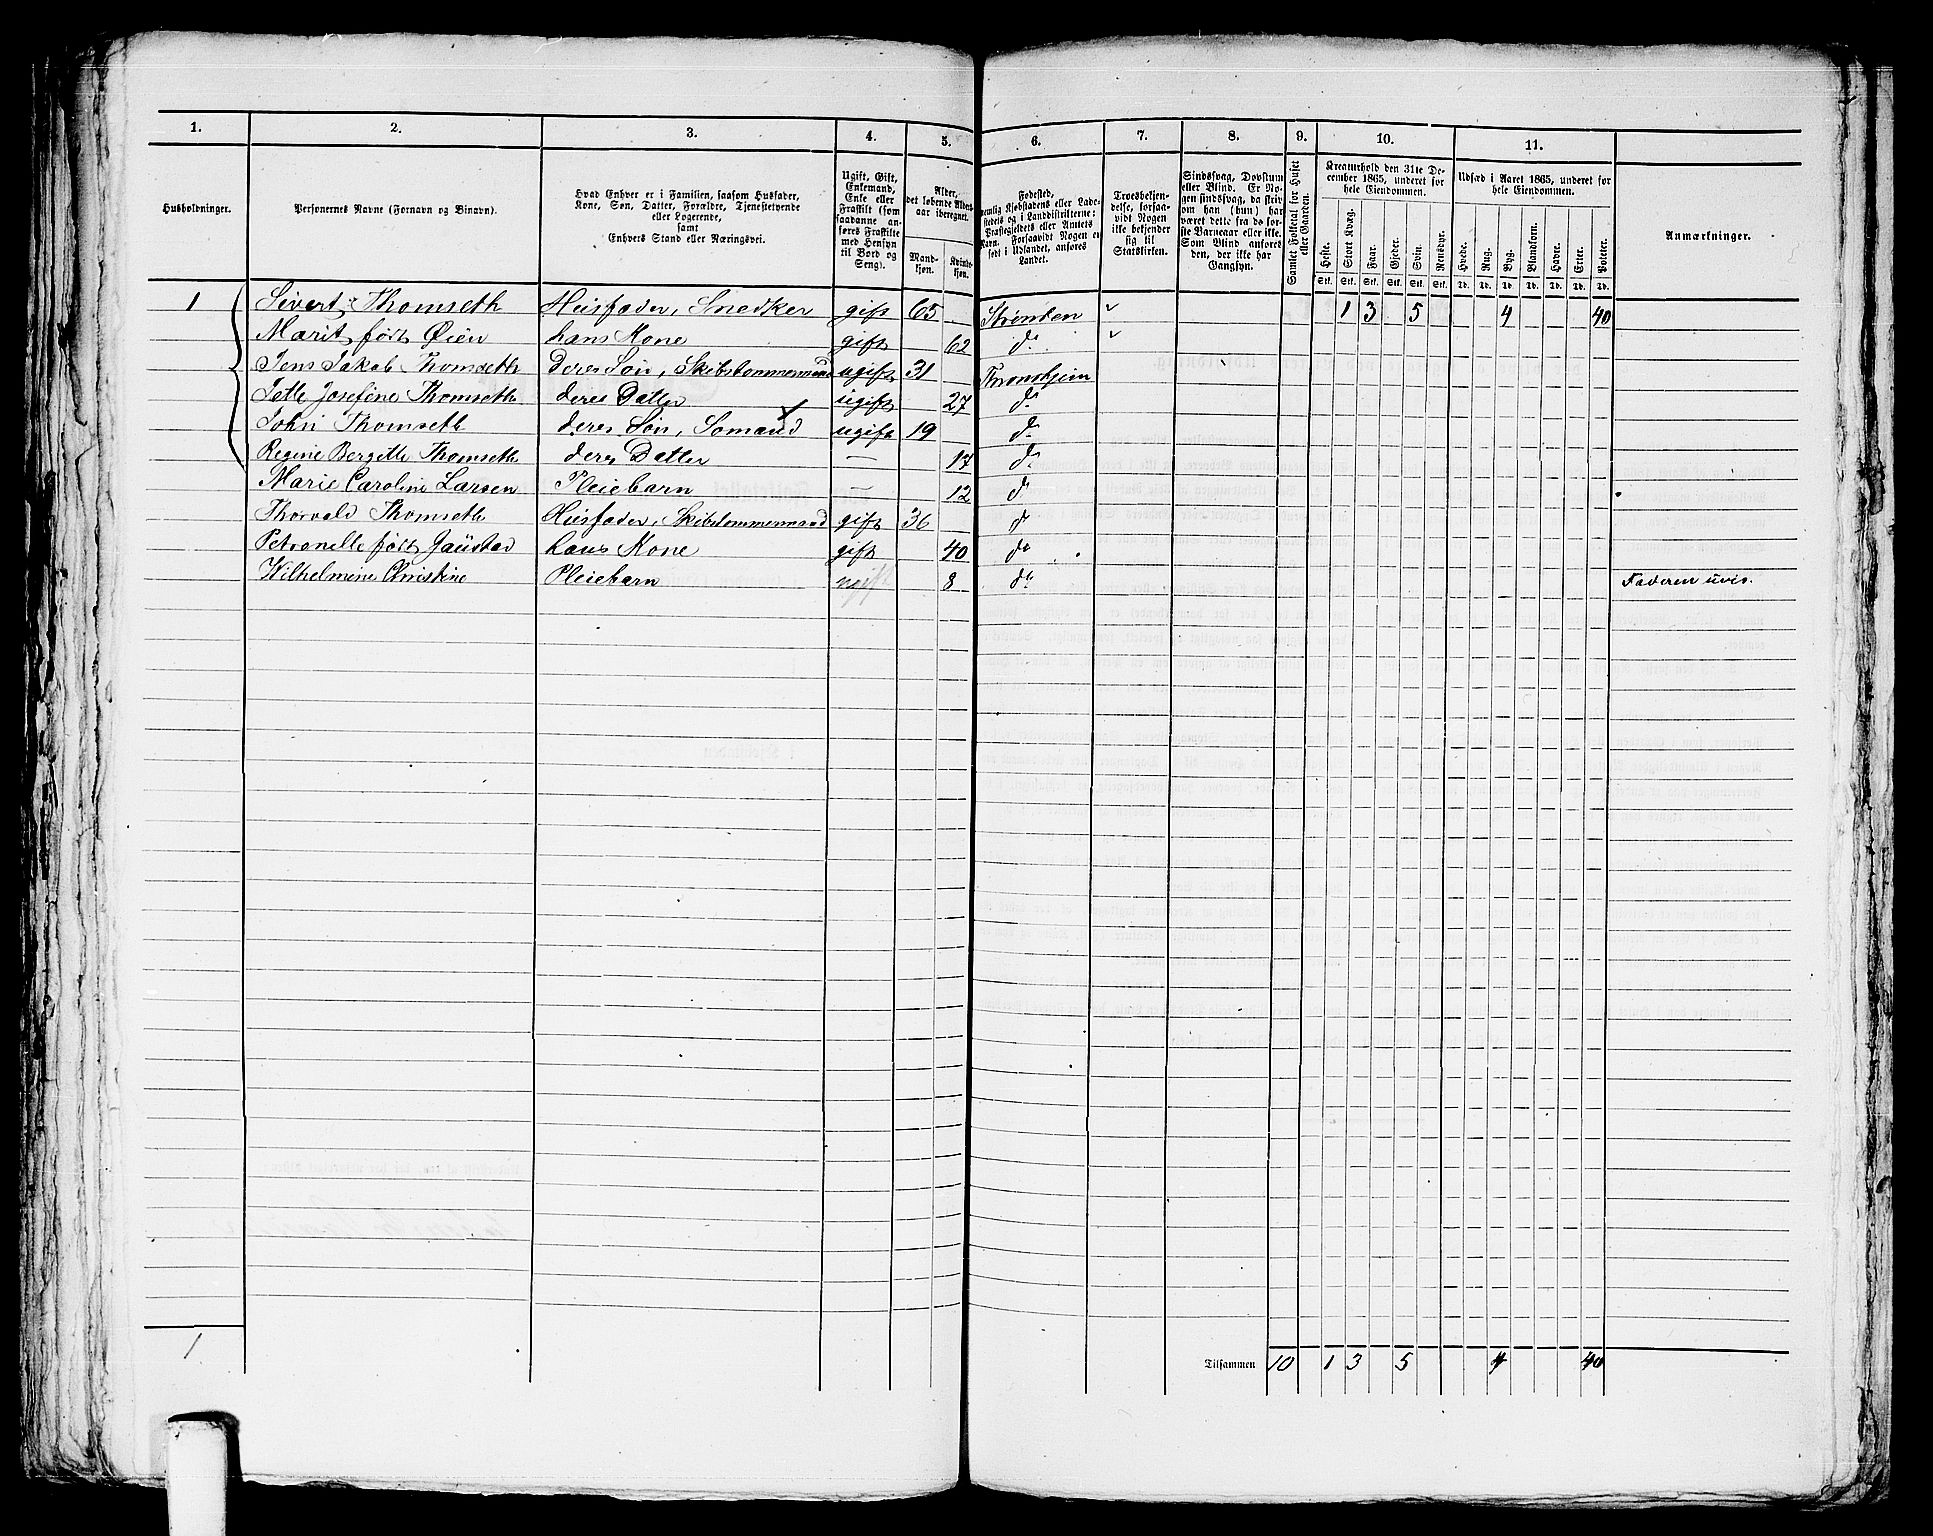 1. 2. 3. 4. 5. 6. 7. 8. 9. 10. 11.
Husholdninger.
Personernes Navne (Fornavn og Binavn).
Hvad Enhver er i Familien, saasom Husfader,
Kone, Søn, Datter, Forældre, Tjenestetyende
eller Logerende,
samt
Enhvers Stand eller Næringsvei.
Ugift, Gift,
Enkemand,
Enke eller
Fraskilt (som
saadanne an-
føres Fraskilte
med Hensyn
til Bord og
Seng).
Alder,
det løbende Alders-
aar iberegnet.
Mand-
kjøn.
Kvinde-
kjøn.
Fødested,
nemlig Kjøbstadens eller Lade-
stedets og i Landdistrikterne:
Præstegjeldets eller Amtets
Navn. Forsaavidt Nogen er
født i Udlandet, anføres
Landet.
Troesbekjen-
delse, forsaa-
vidt Nogen
ikke bekjender
sig til
Statskirken.
Sindssvag, Døvstum
eller Blind. Er No-
gen sindssvag, da skri-
ves om han (hun) har
været dette fra de før-
ste Barneaar eller ikke.
Som Blind anføres
den, der ikke har
Gangsyn.
Samlet Folketal for Huset
eller Gaarden.
Kreaturhold den 31te De-
cember 1865, underet for
hele Eiendommen.
Heste. Stort Kvæg. Faar. Gjeder. Svin. Rensdyr.
Stk. Stk. Stk. Stk. Stk. Stk.
Udsæd i Aaret 1865, underet for
hele Eiendommen.
Hvede. Rug. Byg. Blandkorn. Havre. Erter. Poteter.
Td. Td. Td. Td. Td. Td. Td.
Anmærkninger.
1 Sivert Thomseth Huusfader, Snedker gift 65 Strinden 1 3 5 4 40
Marit født Øien hans Kone gift 62 do
Jens Jakob Thomseth deres Søn, Skibstømmermand ugift 31 Thronhjem
Jette Josefine Thomseth deres Datter ugift 27 do
John Thomseth deres Søn, Sømand ugift 19 do
Regine Bergitte Thomseth deres Datter — 17 do
Marie Caroline Larsen Pleiebarn — 12 do
Thorvald Thomseth Huusfader, Skibstømmermand gift 36 do
Petronelle født Gaustad hans Kone gift 40 do
Wilhelmine Christine Pleiebarn ugift 8 do Faderen uvis.
1 Tilsammen 10 1 3 5 4 40